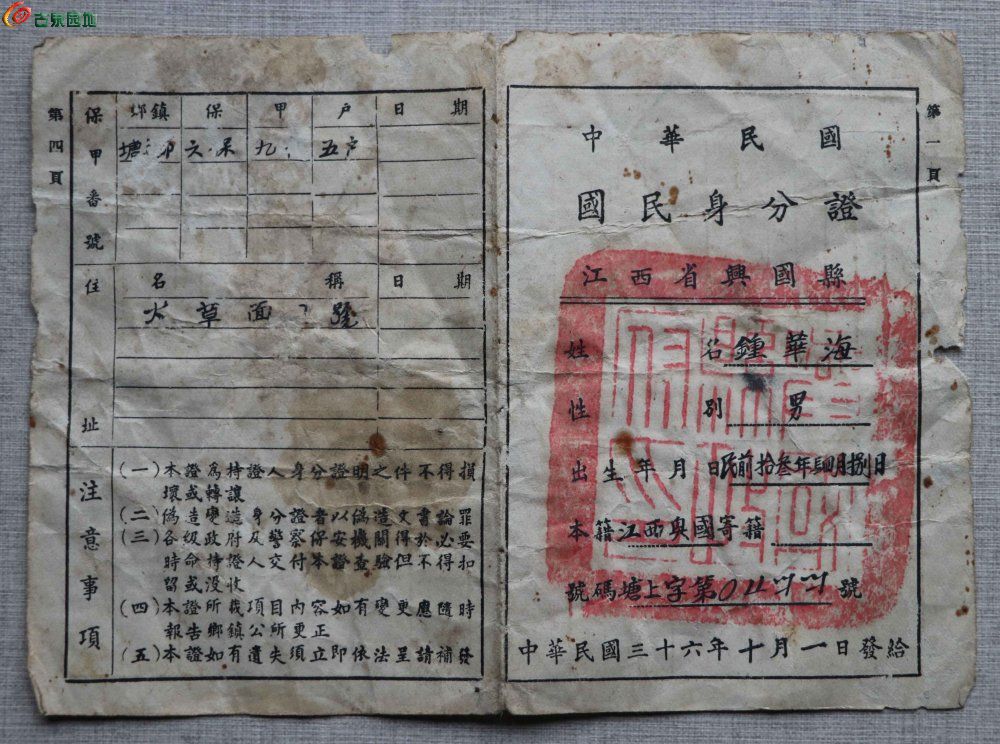 古泉园地
第一頁
中華民國
國民身分證
江西省興國縣
姓名鍾華海
性別男
出生年月日民前拾叁年肆月捌日
本籍江西興國寄籍
號碼塘上字第號
中華民國三十六年十月一日發給
第四頁
保甲番號
鄉鎮 保 甲 戶 日期
塘 六 九 五戶
住址
名稱 日期
草面 號
注意事項
(一)本證為持證人身分證明之件不得損
壞或轉讓
(二)偽造變造身分證者以偽造文書論罪
(三)各級政府及警察保安機關於必要
時得命持證人交付本證查驗但不得扣
留或沒收
(四)本證所載項目內容如有變更應隨時
報告鄉鎮公所更正
(五)本證如有遺失須立即依法呈請補發